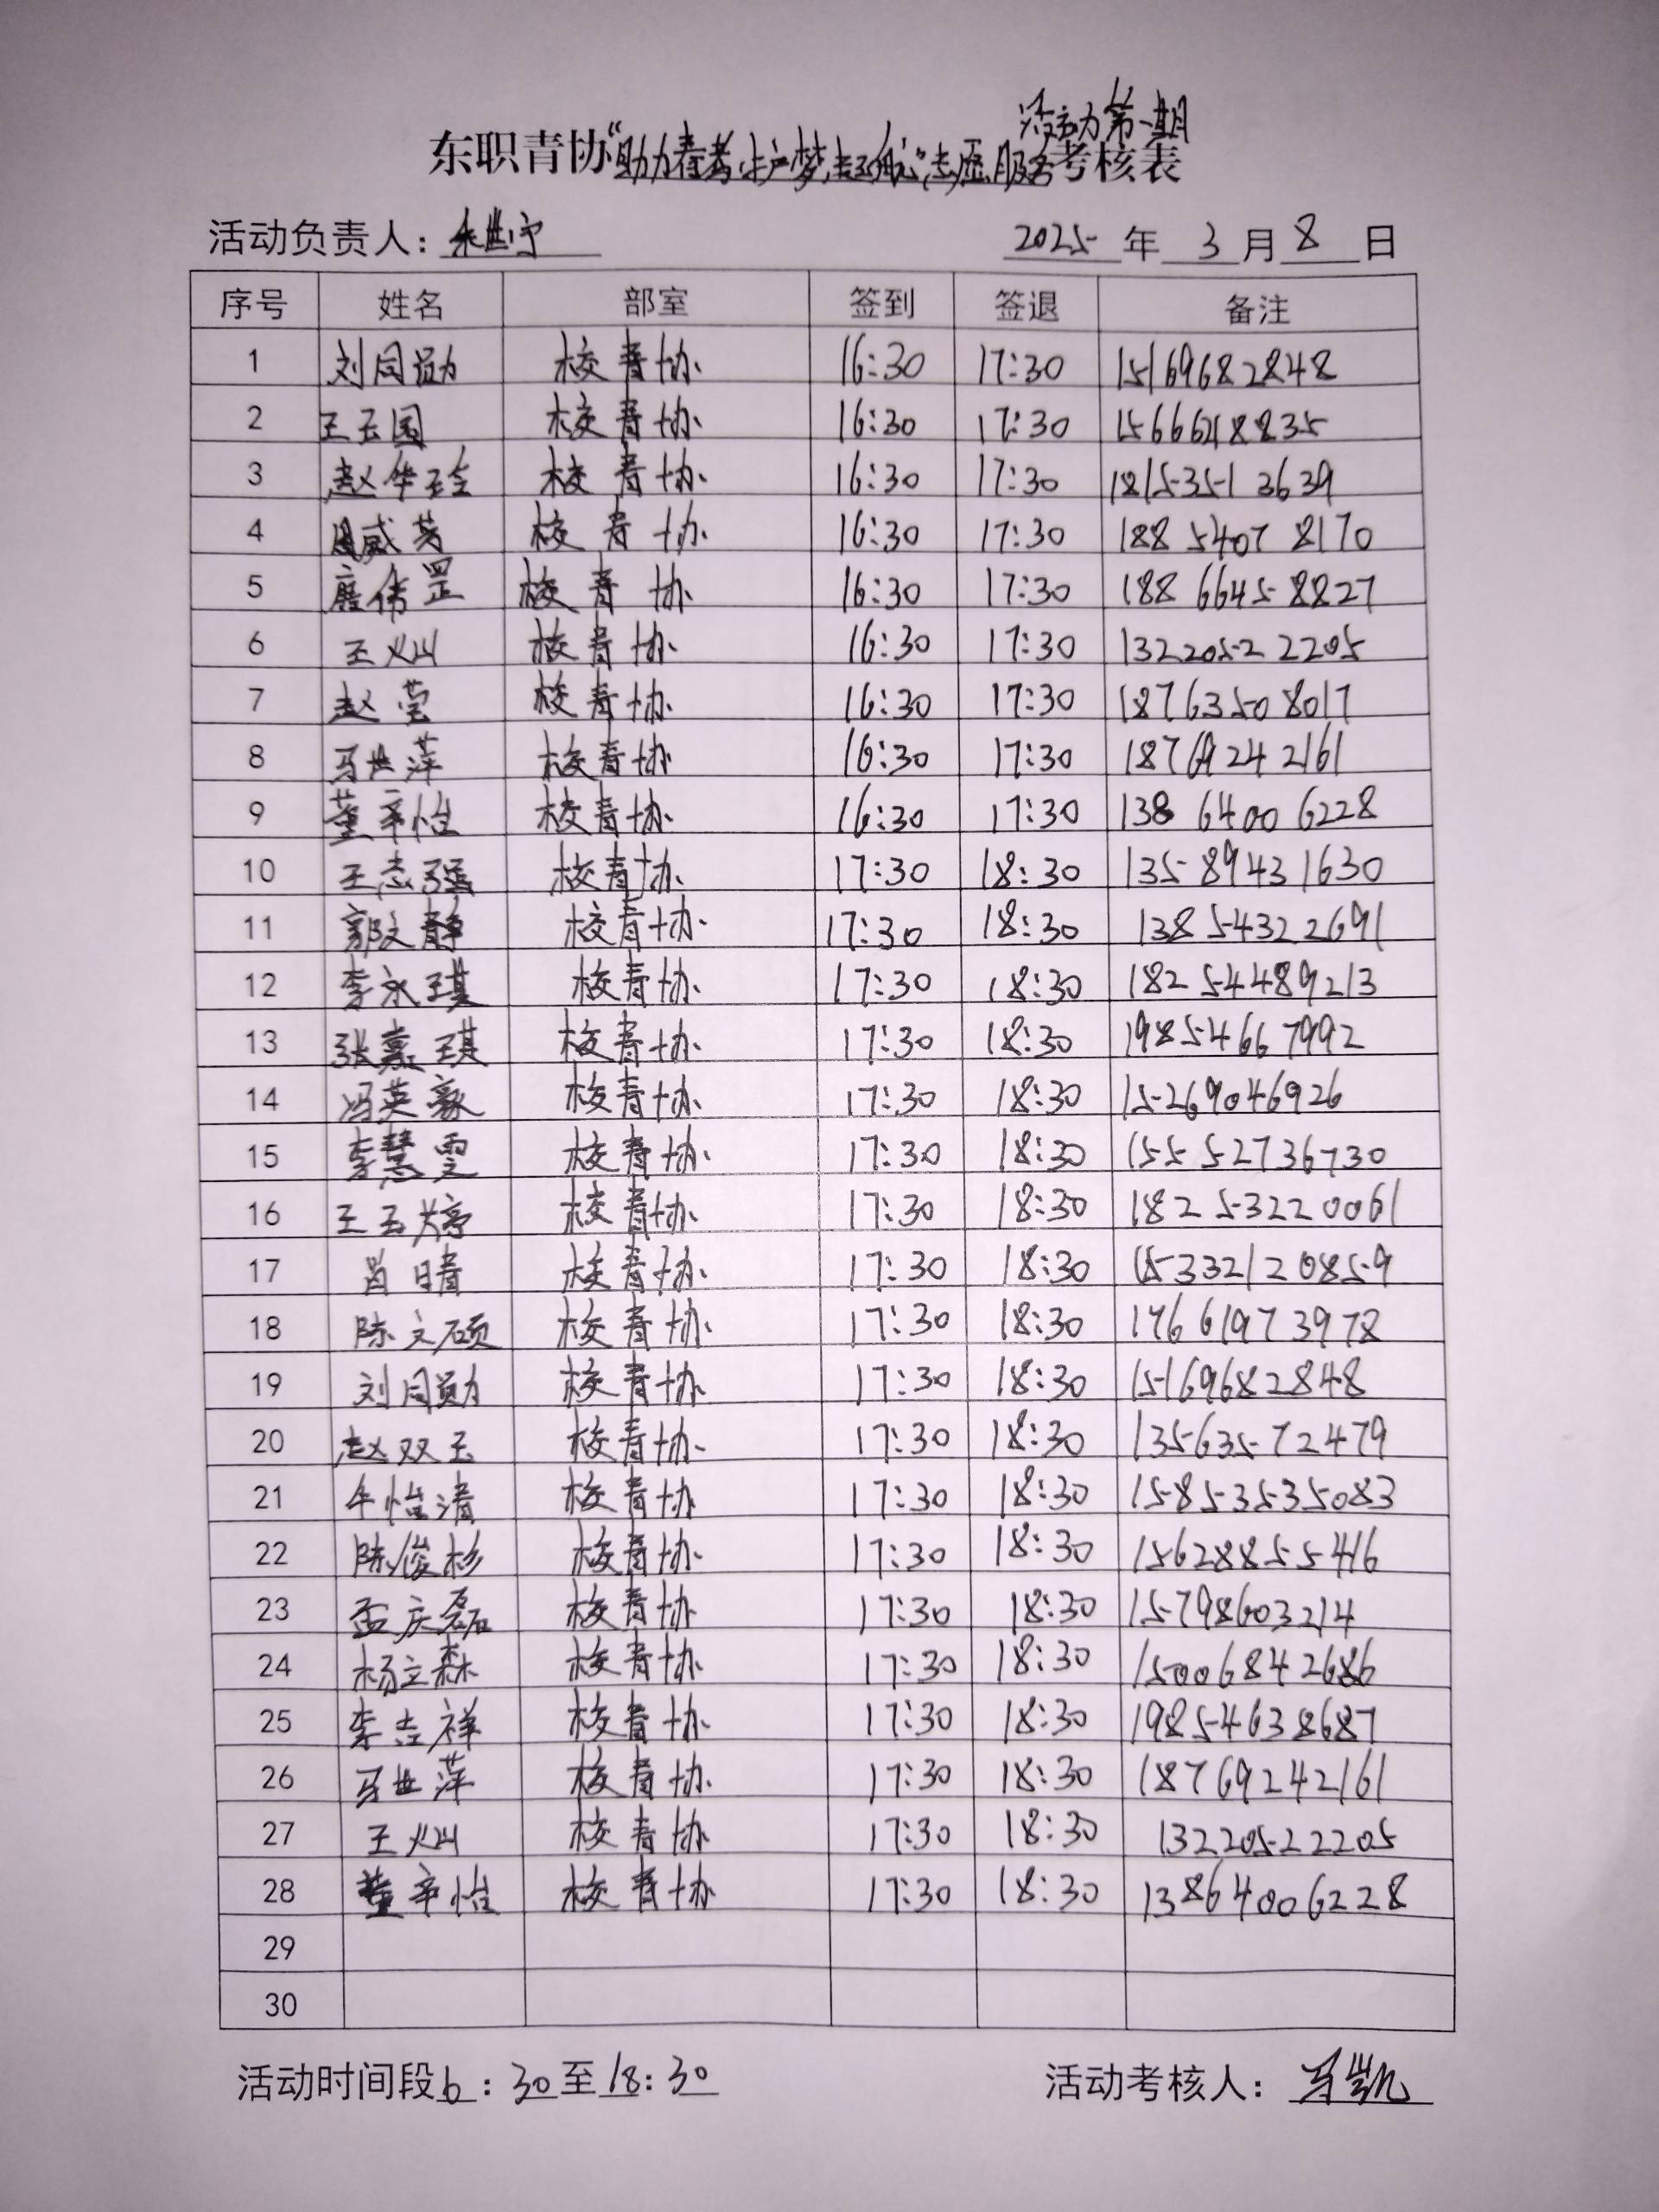 活动第一期
东职青协“助力春考,护梦起航”志愿服务考核表
活动负责人: 朱世宁 2025 年 3 月 8 日
序号 姓名 部室 签到 签退 备注
1 刘同勋 校青协 16:30 17:30 15169682848
2 王玉国 校青协 16:30 17:30 15666218835
3 赵华玲 校青协 16:30 17:30 18153513639
4 威芳 校青协 16:30 17:30 188 5407 8170
5 唐伟罡 校青协 16:30 17:30 188 6645 8827
6 王义山 校青协 16:30 17:30 13220522205
7 赵莹 校青协 16:30 17:30 18763508017
8 马世萍 校青协 16:30 17:30 18769242161
9 董辛怡 校青协 16:30 17:30 138 6400 6228
10 王志强 校青协 17:30 18:30 13589431630
11 郭文静 校青协 17:30 18:30 13854322691
12 李永琪 校青协 17:30 18:30 18254489213
13 张嘉琪 校青协 17:30 18:30 19854667992
14 冯英豪 校青协 17:30 18:30 15269046926
15 李慧雯 校青协 17:30 18:30 15552736730
16 王玉婷 校青协 17:30 18:30 18253220061
17 吕晴 校青协 17:30 18:30 15332120859
18 陈文硕 校青协 17:30 18:30 17661973978
19 刘同勋 校青协 17:30 18:30 15169682848
20 赵双玉 校青协 17:30 18:30 13563572479
21 牛怡清 校青协 17:30 18:30 15853535083
22 陈俊杉 校青协 17:30 18:30 15628855416
23 孟庆磊 校青协 17:30 18:30 15798603214
24 杨立森 校青协 17:30 18:30 15006842686
25 李吉祥 校青协 17:30 18:30 19854638687
26 马世萍 校青协 17:30 18:30 18769242161
27 王义山 校青协 17:30 18:30 13220522205
28 董辛怡 校青协 17:30 18:30 13864006228
29
30
活动时间段16:30至18:30 活动考核人: 马凯